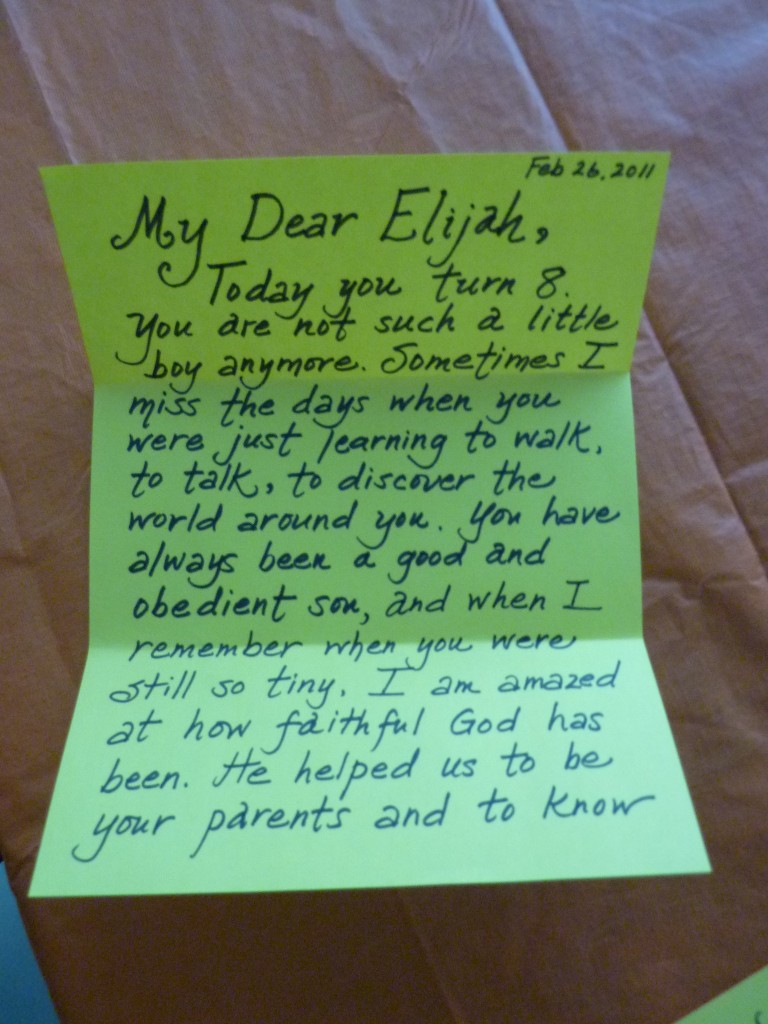 Feb 26, 2011
My Dear Elijah,
Today you turn 8.
You are not such a little
boy anymore. Sometimes I
miss the days when you
were just learning to walk,
to talk, to discover the
world around you. You have
always been a good and
obedient son, and when I
remember when you were
still so tiny, I am amazed
at how faithful God has
been. He helped us to be
your parents and to know